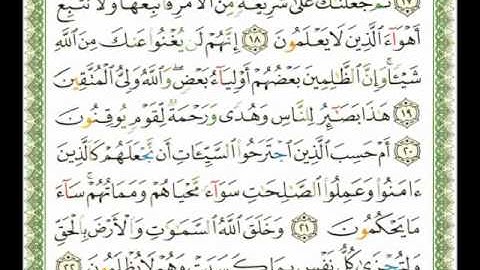 ١٧ ثُمَّ جَعَلْنَٰكَ عَلَىٰ شَرِيعَةٍ مِّنَ ٱلْأَمْرِ فَٱتَّبِعْهَا وَلَا تَتَّبِعْ
أَهْوَآءَ ٱلَّذِينَ لَا يَعْلَمُونَ ١٨ إِنَّهُمْ لَن يُغْنُوا۟ عَنكَ مِنَ ٱللَّهِ
شَيْـًٔا ۚ وَإِنَّ ٱلظَّٰلِمِينَ بَعْضُهُمْ أَوْلِيَآءُ بَعْضٍ ۖ وَٱللَّهُ وَلِىُّ ٱلْمُتَّقِينَ
١٩ هَٰذَا بَصَٰٓئِرُ لِلنَّاسِ وَهُدًى وَرَحْمَةٌ لِّقَوْمٍ يُوقِنُونَ
٢٠ أَمْ حَسِبَ ٱلَّذِينَ ٱجْتَرَحُوا۟ ٱلسَّيِّـَٔاتِ أَن نَّجْعَلَهُمْ كَٱلَّذِينَ
ءَامَنُوا۟ وَعَمِلُوا۟ ٱلصَّٰلِحَٰتِ سَوَآءً مَّحْيَاهُمْ وَمَمَاتُهُمْ ۚ سَآءَ
مَا يَحْكُمُونَ ٢١ وَخَلَقَ ٱللَّهُ ٱلسَّمَٰوَٰتِ وَٱلْأَرْضَ بِٱلْحَقِّ
وَلِتُجْزَىٰ كُلُّ نَفْسٍۭ بِمَا كَسَبَتْ وَهُمْ لَا يُظْلَمُونَ ٢٢